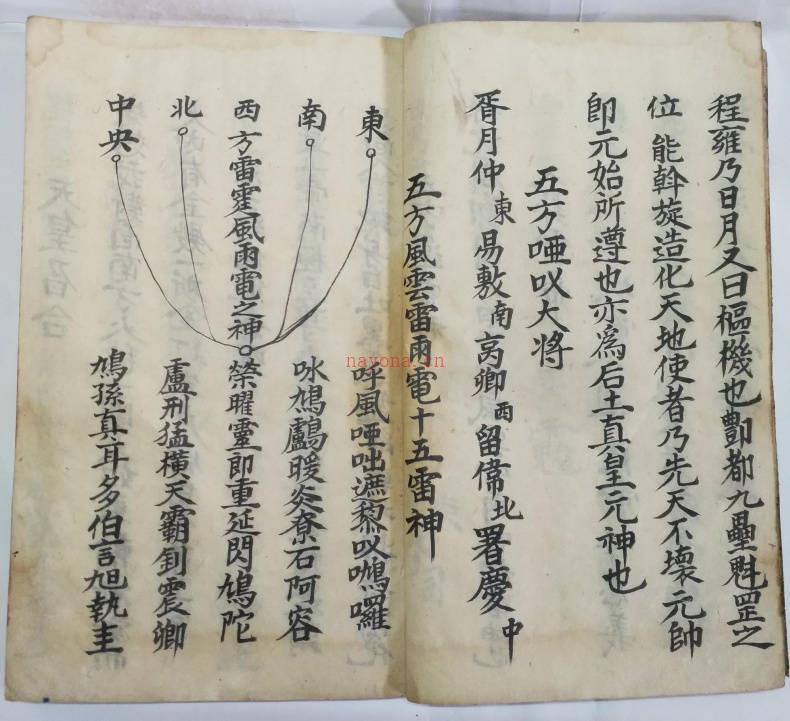 程雍乃日月又曰樞機也酆都九壘魁罡之
位能斡旋造化天地使者乃先天不壞元帥
即元始所遵也亦為后土真皇元神也
五方啞㕥大将
胥月仲東易敷南卨卿西留偉北署慶中
五方風雲雷雨電十五雷神
東 呼風啞咄遮黎㕥囉
南 咏鴆鸕暖炎尞石阿容
西方雷霆風雨電之神榮曜靈即重延閃鳩陀
北 盧刑猛橫天霸釗震卿
中央 鳩孫真耳多伯言旭執圭
nayona.cn